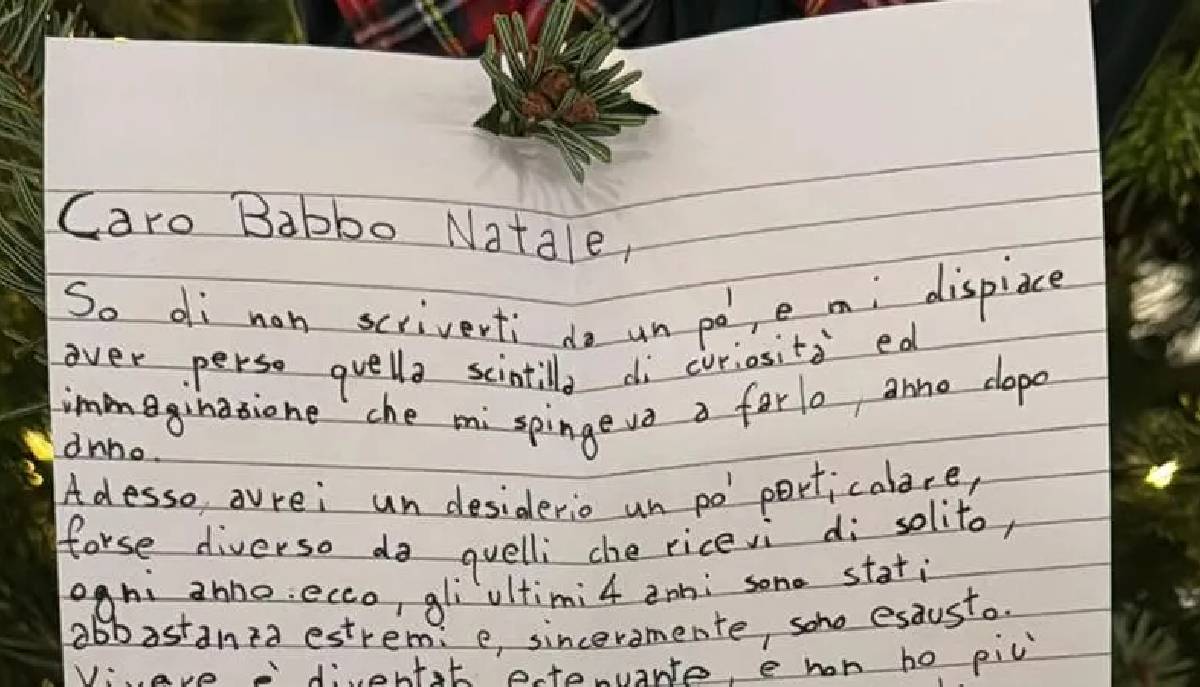 Caro Babbo Natale,
So di non scriverti da un po', e mi dispiace
aver perso quella scintilla di curiosità ed
immaginazione che mi spingeva a farlo, anno dopo
anno.
Adesso, avrei un desiderio un po' particolare,
forse diverso da quelli che ricevi di solito,
ogni anno: ecco, gli ultimi 4 anni sono stati
abbastanza estremi e, sinceramente, sono esausto.
Vivere è diventato estenuante, e non ho più